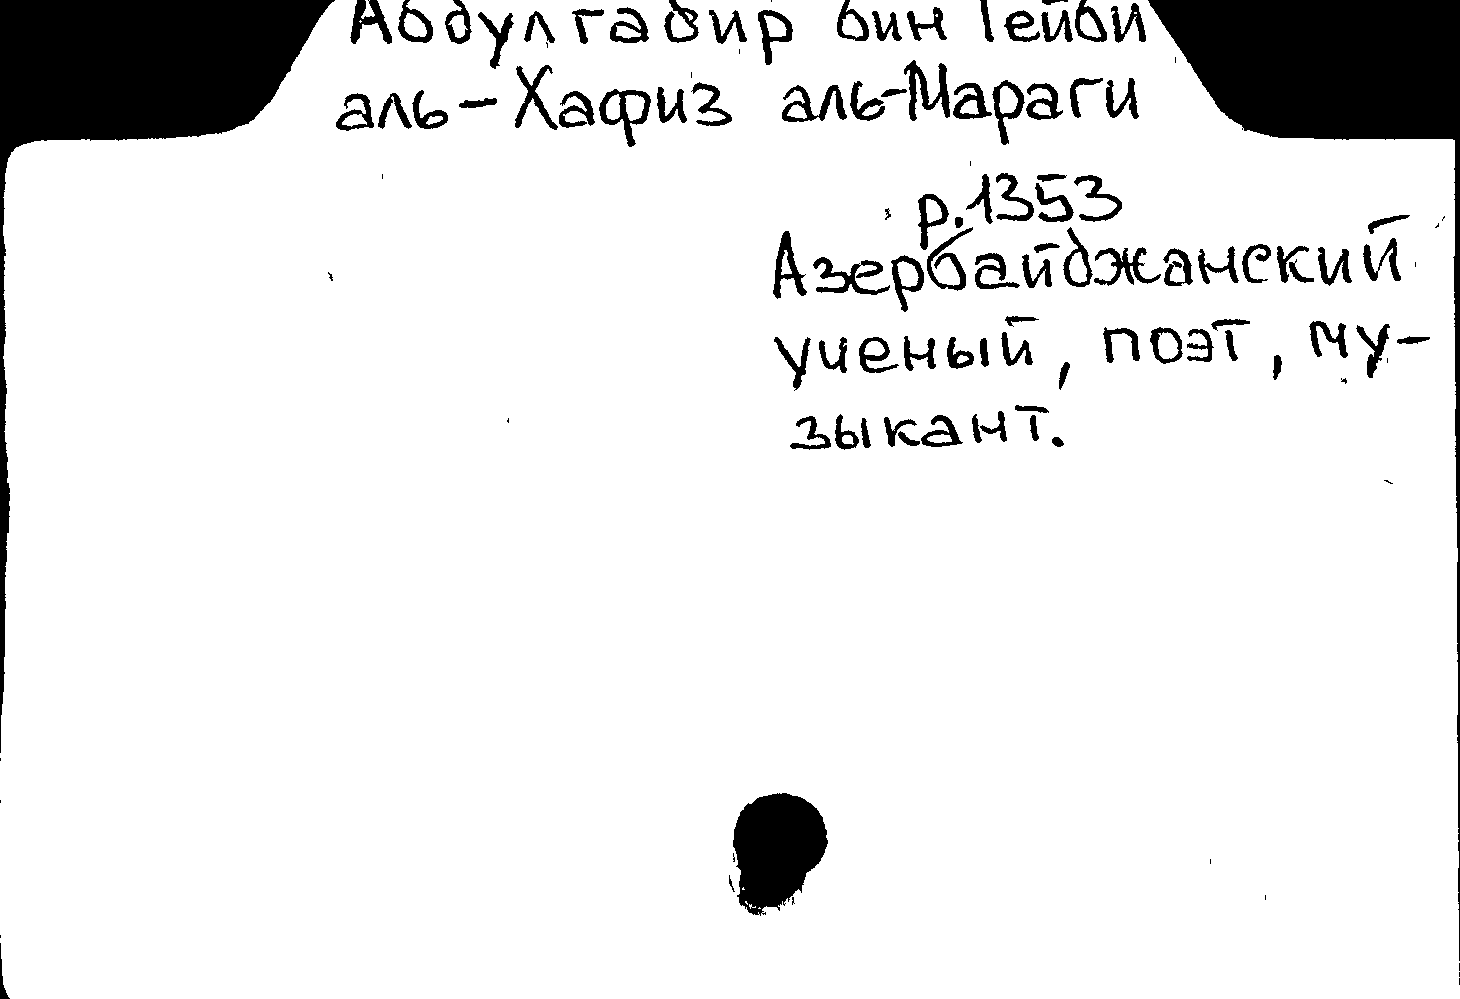 Абдулгадир бин Гейби
аль-Хафиз аль-Мараги
р.1353
Азербайджанский
ученый, поэт, му-
зыкант.